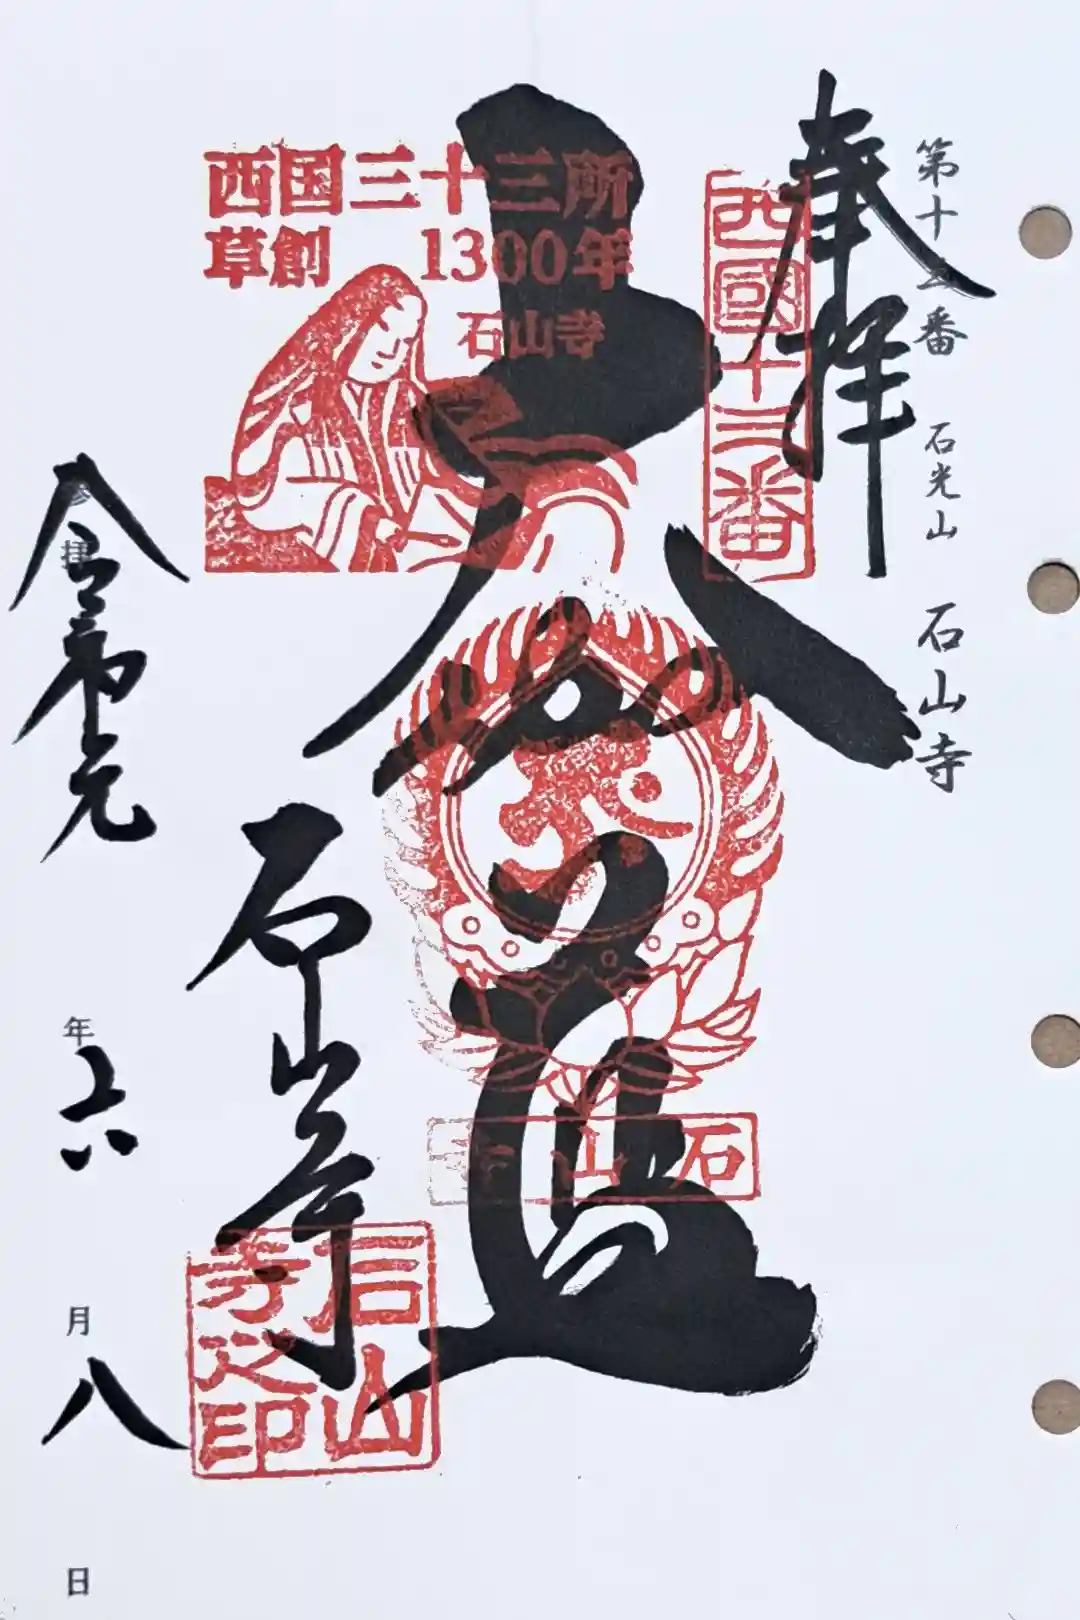 第十三番 石光山 石山寺
奉拝
西國十三番
西国三十三所
草創 1300年
石山寺
大伽藍
石山寺
石山寺
石山寺之印
令和元年六月八日